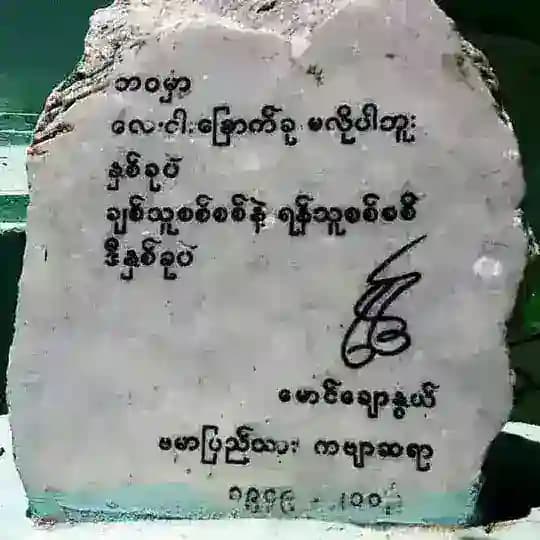 ဘဝမှာ
လေးငါးခြောက်ခု မလိုပါဘူး
နှစ်ခုပဲ
ချစ်သူစစ်စစ်နဲ့ ရန်သူစစ်စစ်
ဒီနှစ်ခုပဲ
မောင်ချောနွယ်
ဗမာပြည်သား ကဗျာဆရာ